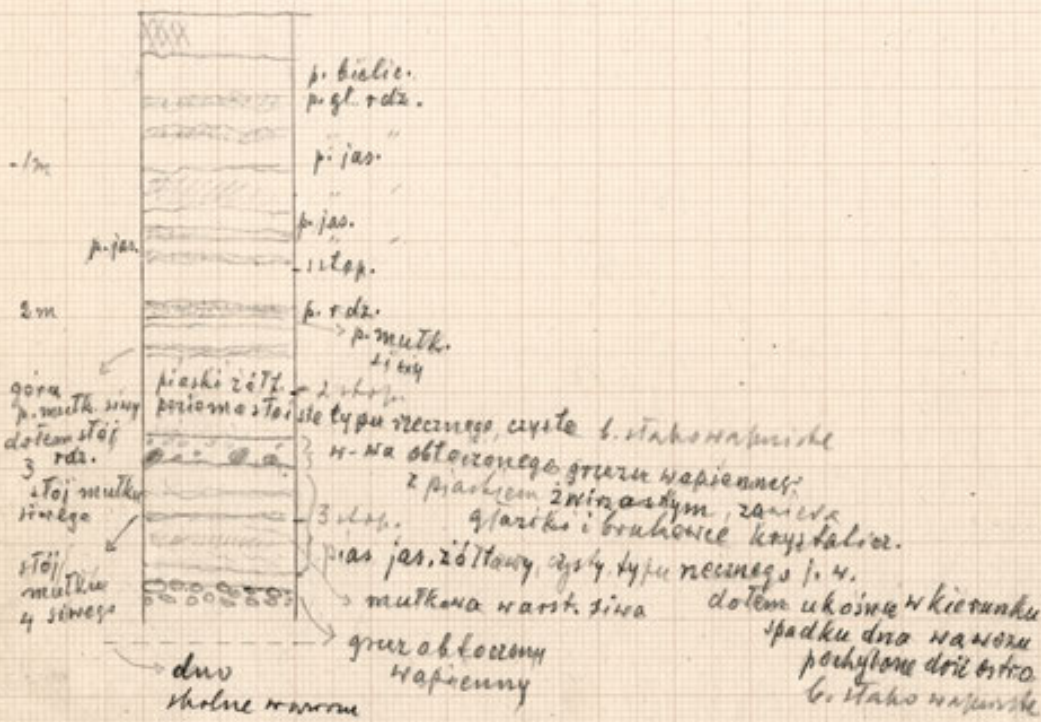 p. bielic.
p. gl. rdz.
" "
- 1 m
p. jas.
" "
p. jas.
" "
p. jas.
1 stop.
2 m
p. rdz.
p. mułk.
siwy
góra
p. mułk. siwy
dołem słój
rdz.
piaski żółt. 2 stop.
poziomo słoiste typu rzecznego, czyste b. słabo wapniste
w-wa obtoczonego gruzu wapiennego
z piaskiem żwirzastym, zawiera
głaziki i brukowce krystalicz.
3
słój mułku
siwego
3 stop.
pias. jas. żółtawy, czysty, typu rzecznego j. w.
słój
mułku
4 siwego
mułkowa warst. siwa
dołem ukośnie w kierunku
spadku dna wąwozu
pochylone dość ostro
b. słabo wapniste
gruz obtoczony
wapienny
dno
skalne wąwozu